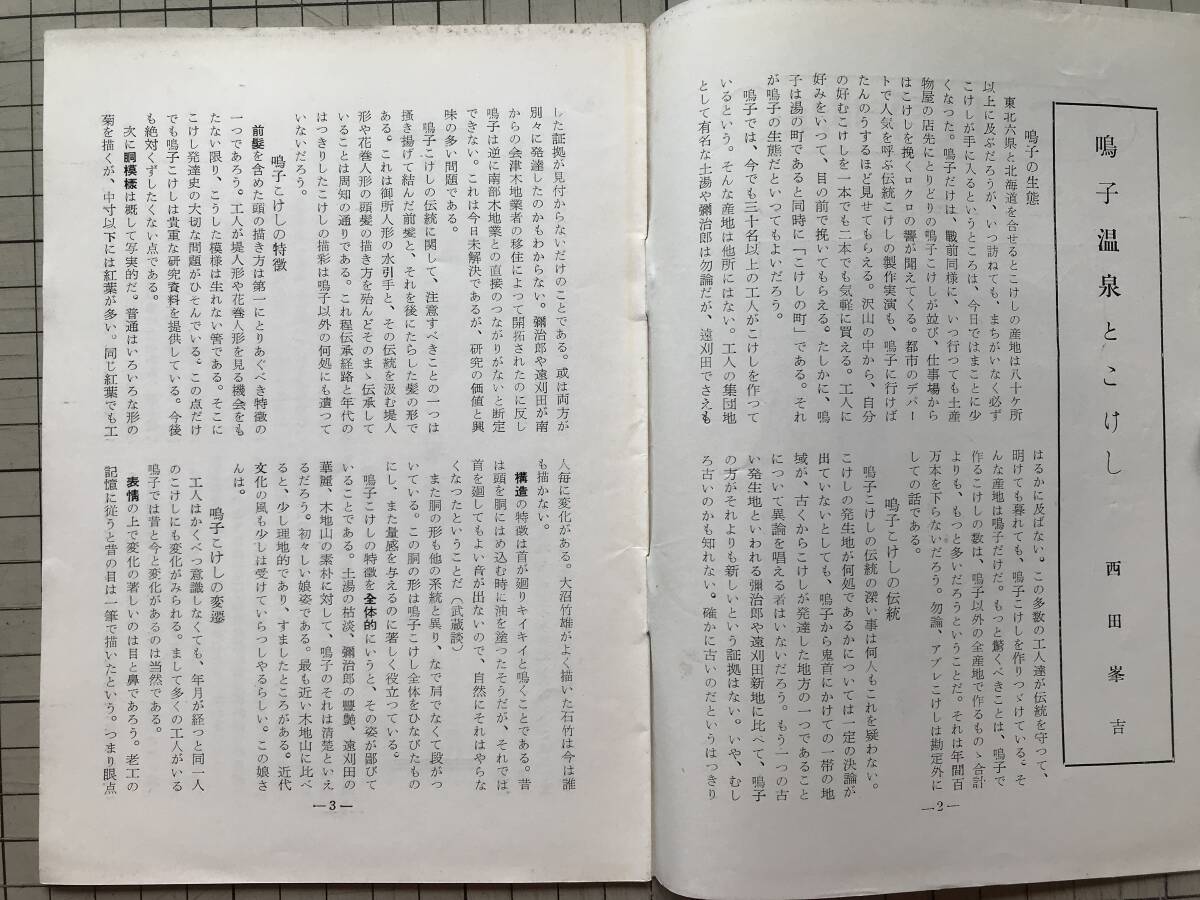 鳴子温泉とこけし
西田峯吉
鳴子の生態
東北六県と北海道を合せるとこけしの産地は八十ケ所
以上に及ぶだろうが、いつ訪ねても、まちがいなく必ず
こけしが手に入るというところは、今日ではまことに少
くなつた。鳴子だけは、戰前同様に、いつ行つても土産
物屋の店先にとりどりの鳴子こけしが並び、仕事場から
はこけしを挽くロクロの響が聞えてくる。都市のデパー
トで人気を呼ぶ伝統こけしの製作実演も、鳴子に行けば
たんのうするほど見せてもらえる。沢山の中から、自分
の好むこけしを一本でも二本でも気軽に買える。工人に
好みをいつて、目の前で挽いてもらえる。たしかに、鳴
子は湯の町であると同時に「こけしの町」である。それ
が鳴子の生態だといつてもよいだろう。
鳴子では、今でも三十名以上の工人がこけしを作つて
いるという。そんな産地は他所にはない。工人の集団地
として有名な土湯や彌治郎は勿論だが、遠刈田でさえも
はるかに及ばない。この多数の工人達が伝統を守つて、
明けても暮れても、鳴子こけしを作りつゞけている。そ
んな産地は鳴子だけだ。もつと驚くべきことは、鳴子で
作るこけしの数は、鳴子以外の全産地で作るものゝ合計
よりも、もつと多いだろうということだ。それは年間百
万本を下らないだろう。勿論、アブレこけしは勘定外に
しての話である。
鳴子こけしの伝統
鳴子こけしの伝統の深い事は何人もこれを疑わない。
こけしの発生地が何処であるかについては一定の決論が
出ていないとしても、鳴子から鬼首にかけての一帯の地
域が、古くからこけしが発達した地方の一つであること
について異論を唱える者はいないだろう。もう一つの古
い発生地といわれる彌治郎や遠刈田新地に比べて、鳴子
の方がそれよりも新しいという証拠はない。いや、むし
ろ古いのかも知れない。確かに古いのだというはつきり
—2—
した証拠が見付からないだけのことである。或は両方が
別々に発達したのかもわからない。彌治郎や遠刈田が南
からの会津木地業者の移住によつて開拓されたのに反し
鳴子は逆に南部木地業との直接のつながりがないと断定
できない。これは今日未解決であるが、研究の価値と興
味の多い問題である。
鳴子こけしの伝統に関して、注意すべきことの一つは
掻き揚げて結んだ前髪と、それを後にたらした髪の形で
ある。これは御所人形の水引手と、その伝統を汲む堤人
形や花巻人形の頭髪の描き方を殆んどそのまゝ伝承して
いることは周知の通りである。これ程伝承経路と年代の
はつきりしたこけしの描彩は鳴子以外の何処にも遺つて
いないだろう。
鳴子こけしの特徴
前髮を含めた頭の描き方は第一にとりあぐべき特徴の
一つであろう。工人が堤人形や花巻人形を見る機会をも
たない限り、こうした模様は生れない筈である。そこに
こけし発達史の大切な問題がひそんでいる。この点だけ
でも鳴子こけしは貴重な研究資料を提供している。今後
も絶対くずしたくない点である。
次に胴模樣は概して写実的だ。普通はいろいろな形の
菊を描くが、中寸以下には紅葉が多い。同じ紅葉でも工
人毎に変化がある。大沼竹雄がよく描いた石竹は今は誰
も描かない。
構造の特徴は首が廻りキイキイと鳴くことである。昔
は頭を胴にはめ込む時に油を塗つたそうだが、それでは
首を廻してもよい音が出ないので、自然にそれはやらな
くなつたということだ（武蔵談）
また胴の形も他の系統と異り、なで肩でなくて段がつ
いている。この胴の形は鳴子こけし全体をひなびたもの
にし、また量感を与えるのに著しく役立つている。
鳴子こけしの特徴を全体的にいうと、その姿が鄙びて
いることである。土湯の枯淡、彌治郎の豐艶、遠刈田の
華麗、木地山の素朴に対して、鳴子のそれは清楚といえ
るだろう。初々しい娘姿である。最も近い木地山に比べ
ると、少し理地的であり、すましたところがある。近代
文化の風も少しは受けていらつしやるらしい。この娘さ
んは。
鳴子こけしの変遷
工人はかくべつ意識しなくても、年月が経つと同一人
のこけしにも変化がみられる。まして多くの工人がいる
鳴子では昔と今と変化があるのは当然である。
表情の上で変化の著しいのは目と鼻であろう。老工の
記憶に従うと昔の目は一筆で描いたという。つまり眼点
—3—